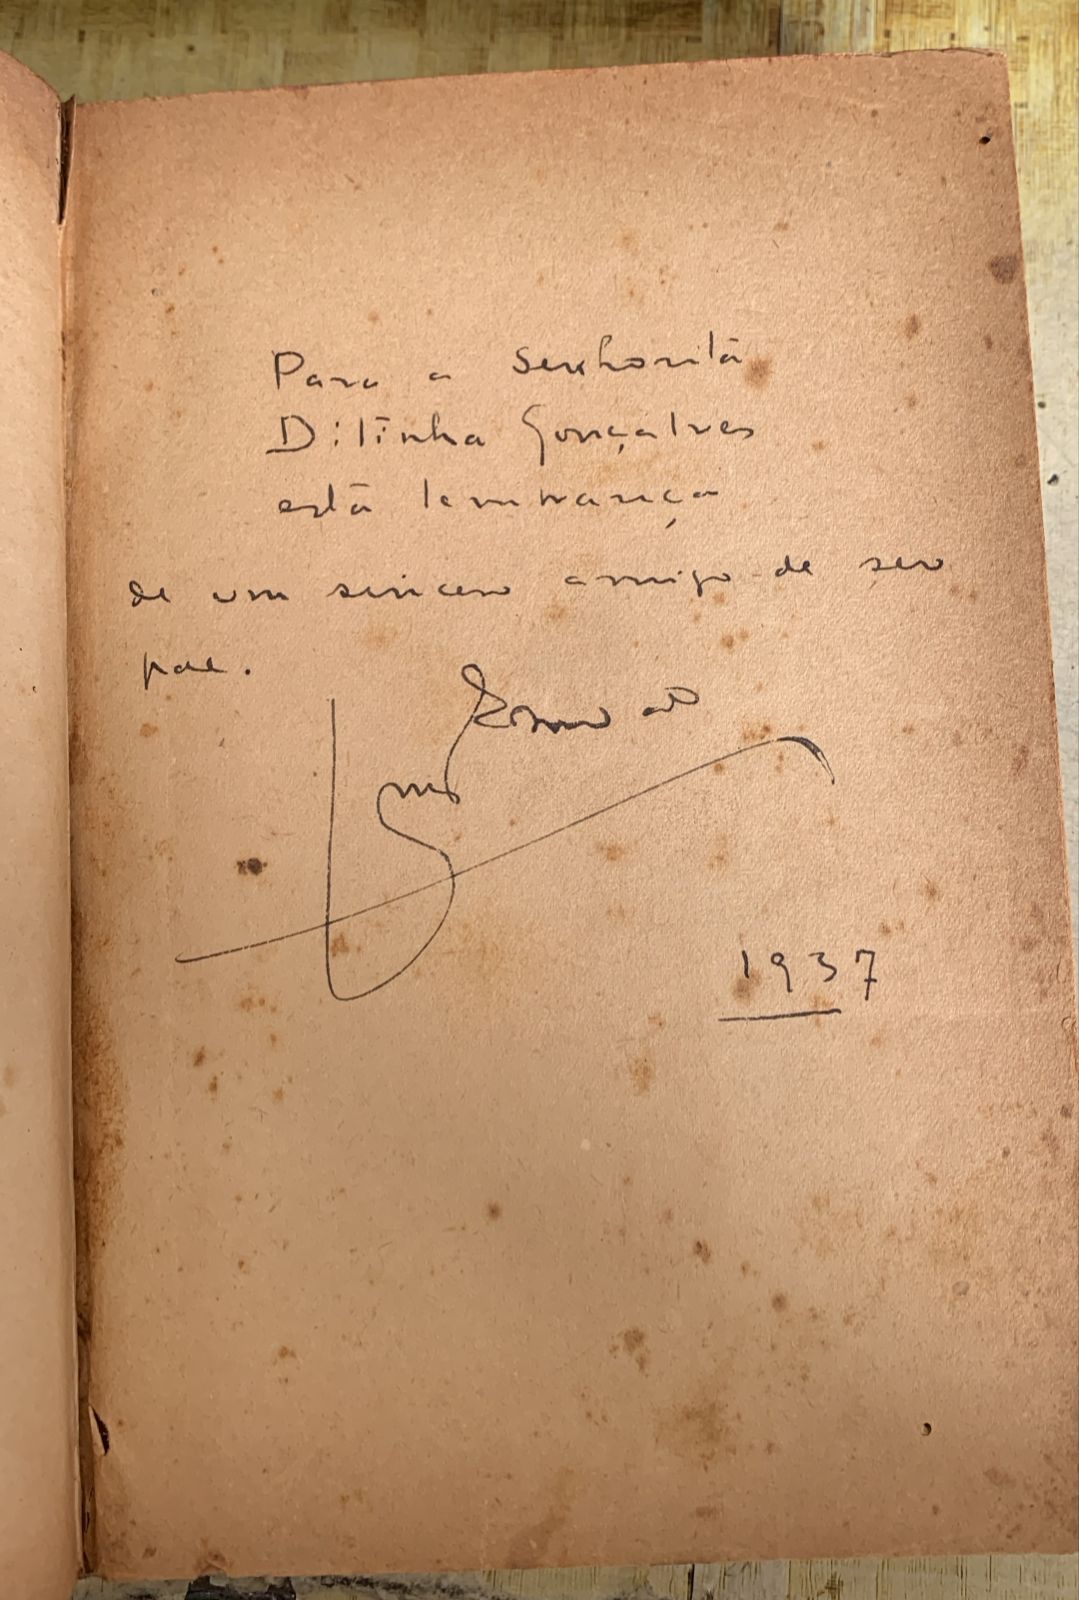 Para a Senhorita
Ditinha Gonçalves
esta lembrança
de um sincero amigo de seu
pae.
1937